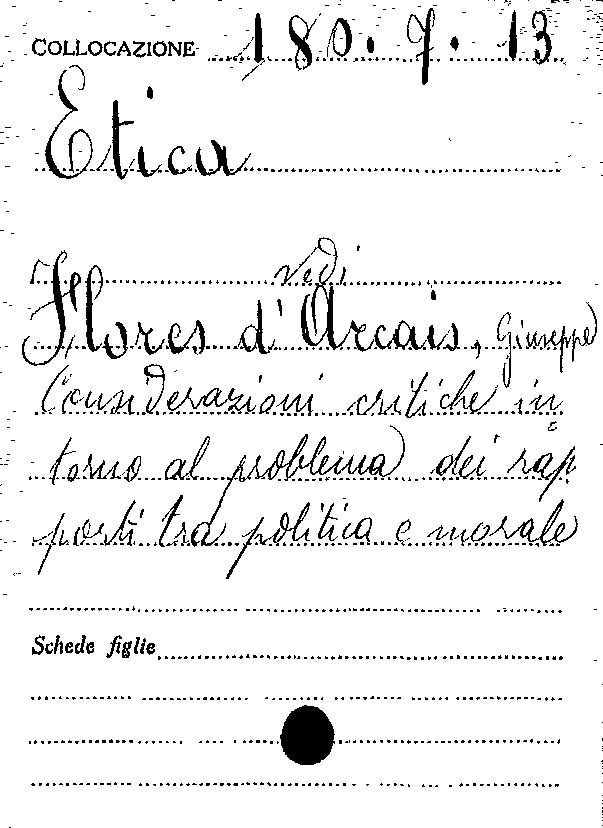 COLLOCAZIONE 180.7.13
Etica
vedi
Flores d'Arcais, Giuseppe
Considerazioni critiche in
torno al problema dei rap
porti tra politica e morale
Schede figlie